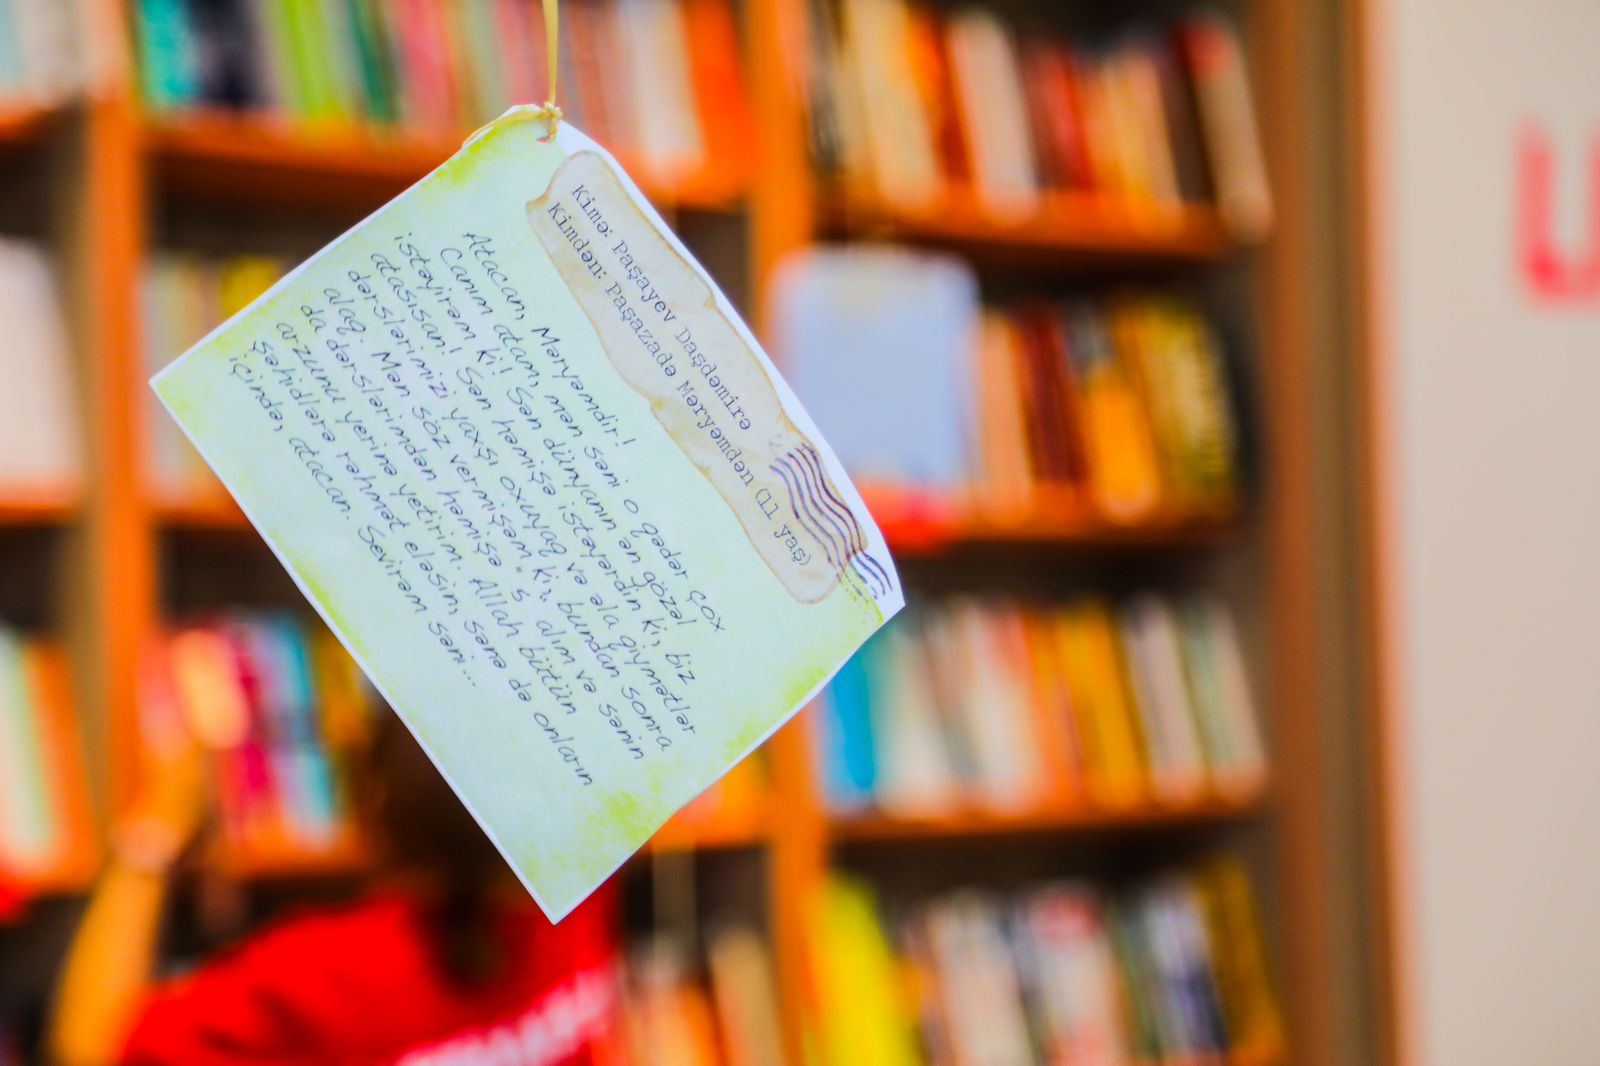 Kimə: Paşayev Daşdəmirə
Kimdən: Paşazadə Məryəmdən (11 yaş)
Atacan, Məryəmdir!
Canım atam, mən səni o qədər çox
istəyirəm ki! Sən dünyanın ən gözəl
atasısan! Sən həmişə istəyərdin ki, biz
dərslərimizi yaxşı oxuyaq və əla qiymətlər
alaq. Mən söz vermişəm ki, bundan sonra
da dərslərimdən həmişə "5" alım və sənin
arzunu yerinə yetirim. Allah bütün
şəhidlərə rəhmət eləsin, sənə də onların
içində, atacan. Sevirəm səni...